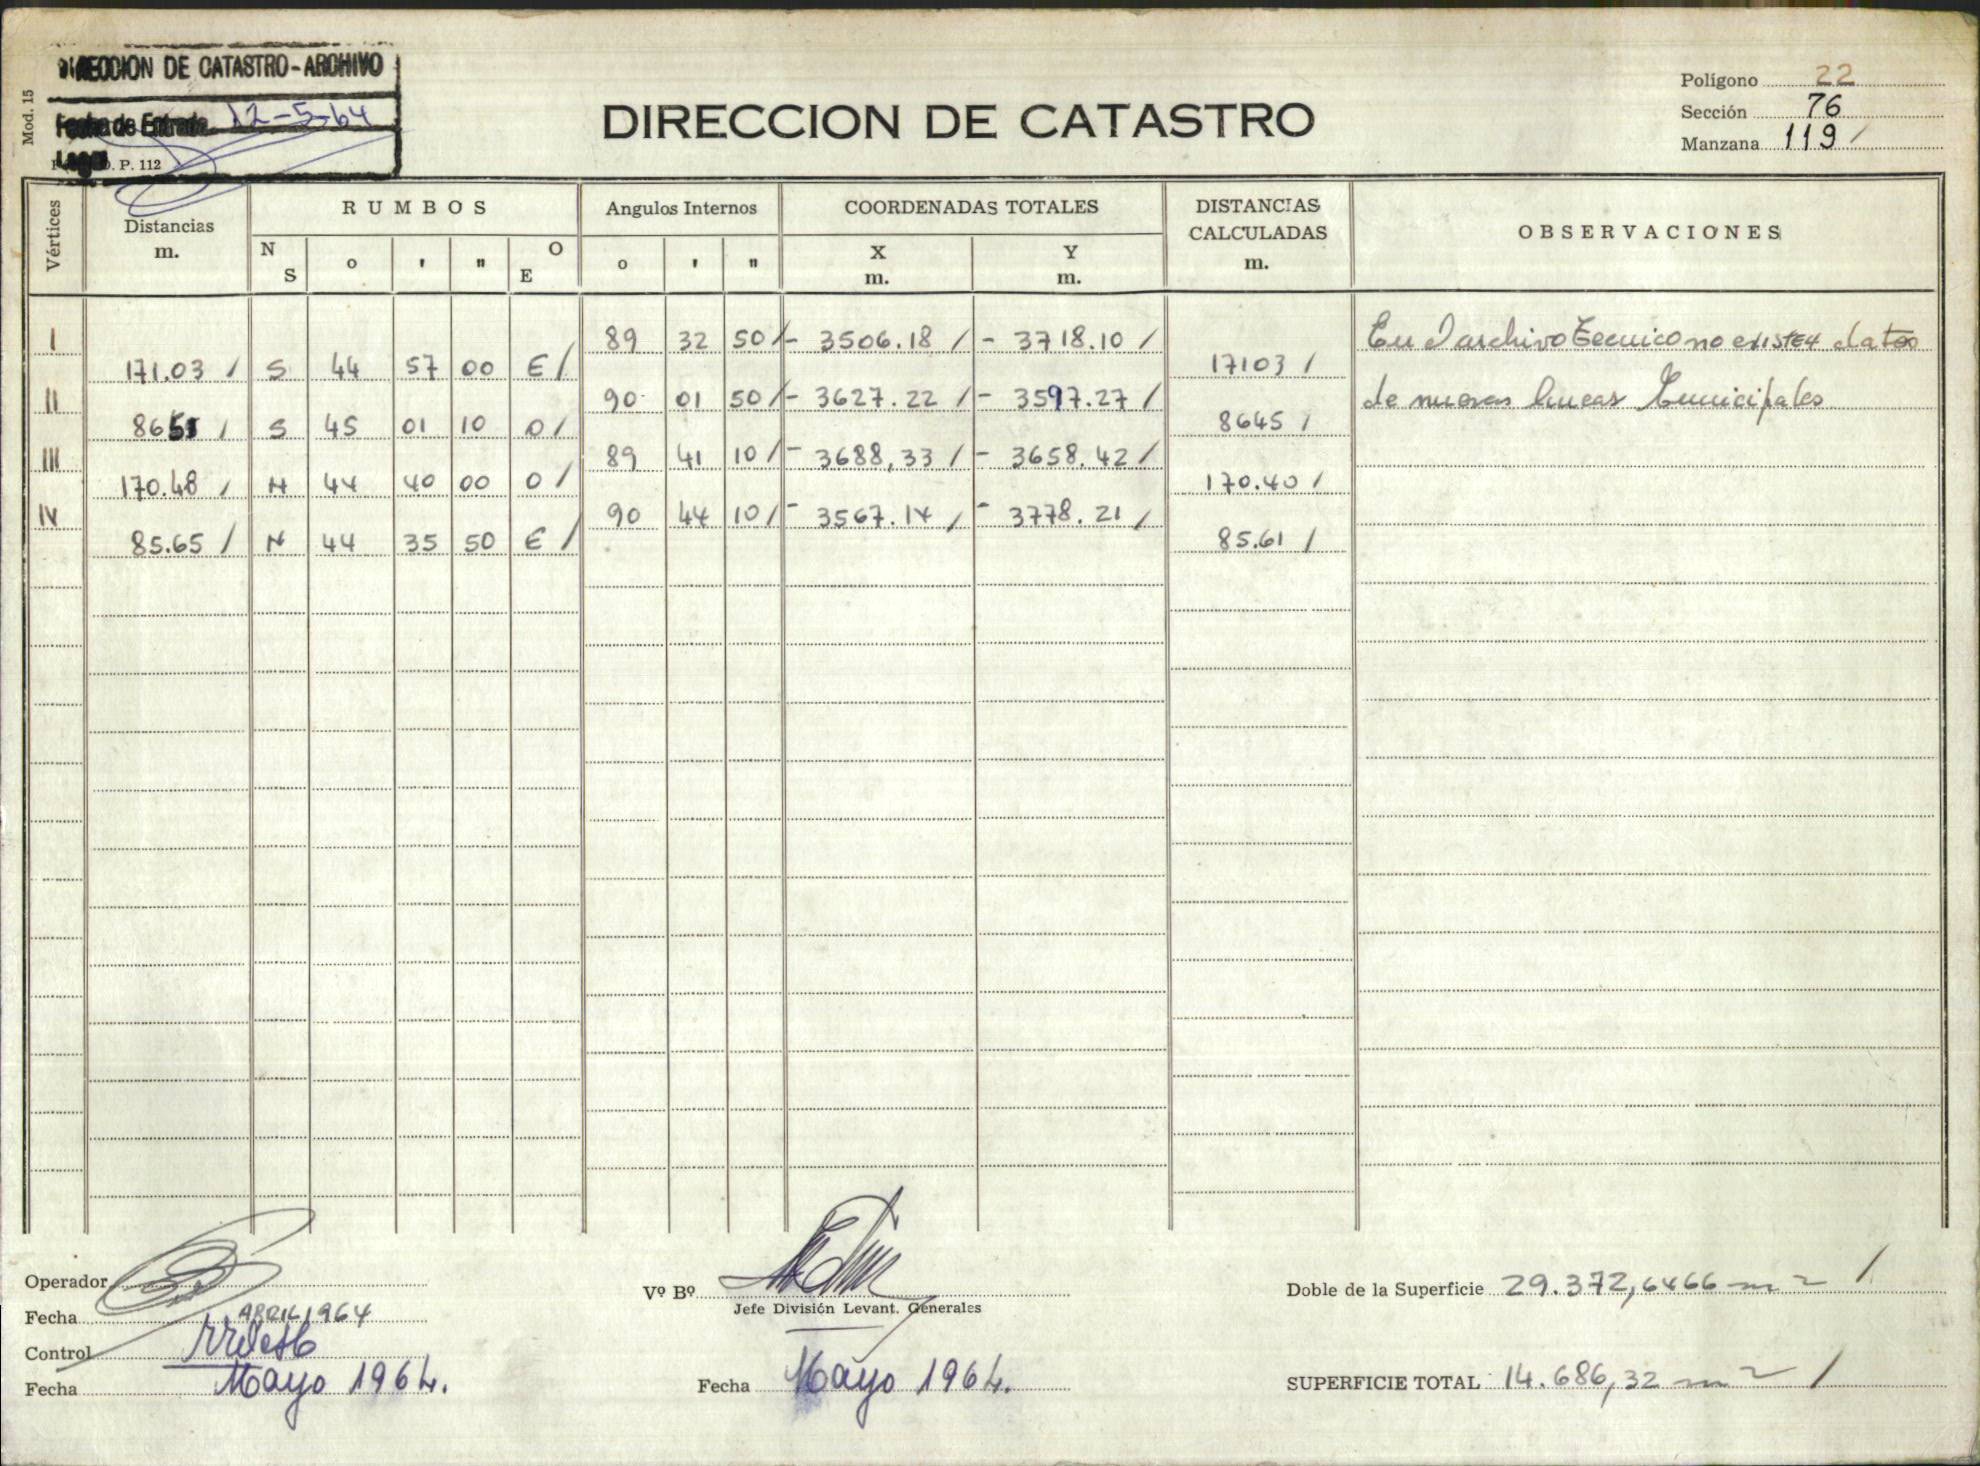 DIRECCION DE CATASTRO - ARCHIVO
Fecha de Entrada 12-5-64
Legajo
Mod. 15
P. 112
DIRECCION DE CATASTRO
Polígono 22
Sección 76
Manzana 119 /
Vértices
Distancias
m.
RUMBOS
N
S
o
'
"
O
E
Angulos Internos
o
'
"
COORDENADAS TOTALES
X
m.
Y
m.
DISTANCIAS
CALCULADAS
m.
OBSERVACIONES
I 89 32 50 / - 3506.18 / - 3718.10 /
171.03 / S 44 57 00 E / 17103 /
II 90 01 50 / - 3627.22 / - 3597.27 /
/ S 45 01 10 O / 8645 /
III 89 41 10 / - 3688,33 / - 3658.42 /
170.48 / N 44 40 00 O / 170.40 /
IV 90 44 10 / - 3567.14 / - 3778.21 /
85.65 / N 44 35 50 E / 85.61 /
En archivo Tecnico no existen datos
de nuevas lineas Municipales
Operador
Fecha ABRIL 1964
Control
Fecha Mayo 1964.
Vº Bº
Jefe División Levant. Generales
Fecha Mayo 1964.
Doble de la Superficie 29.372,6466 m2 /
SUPERFICIE TOTAL 14.686,32 m2 /